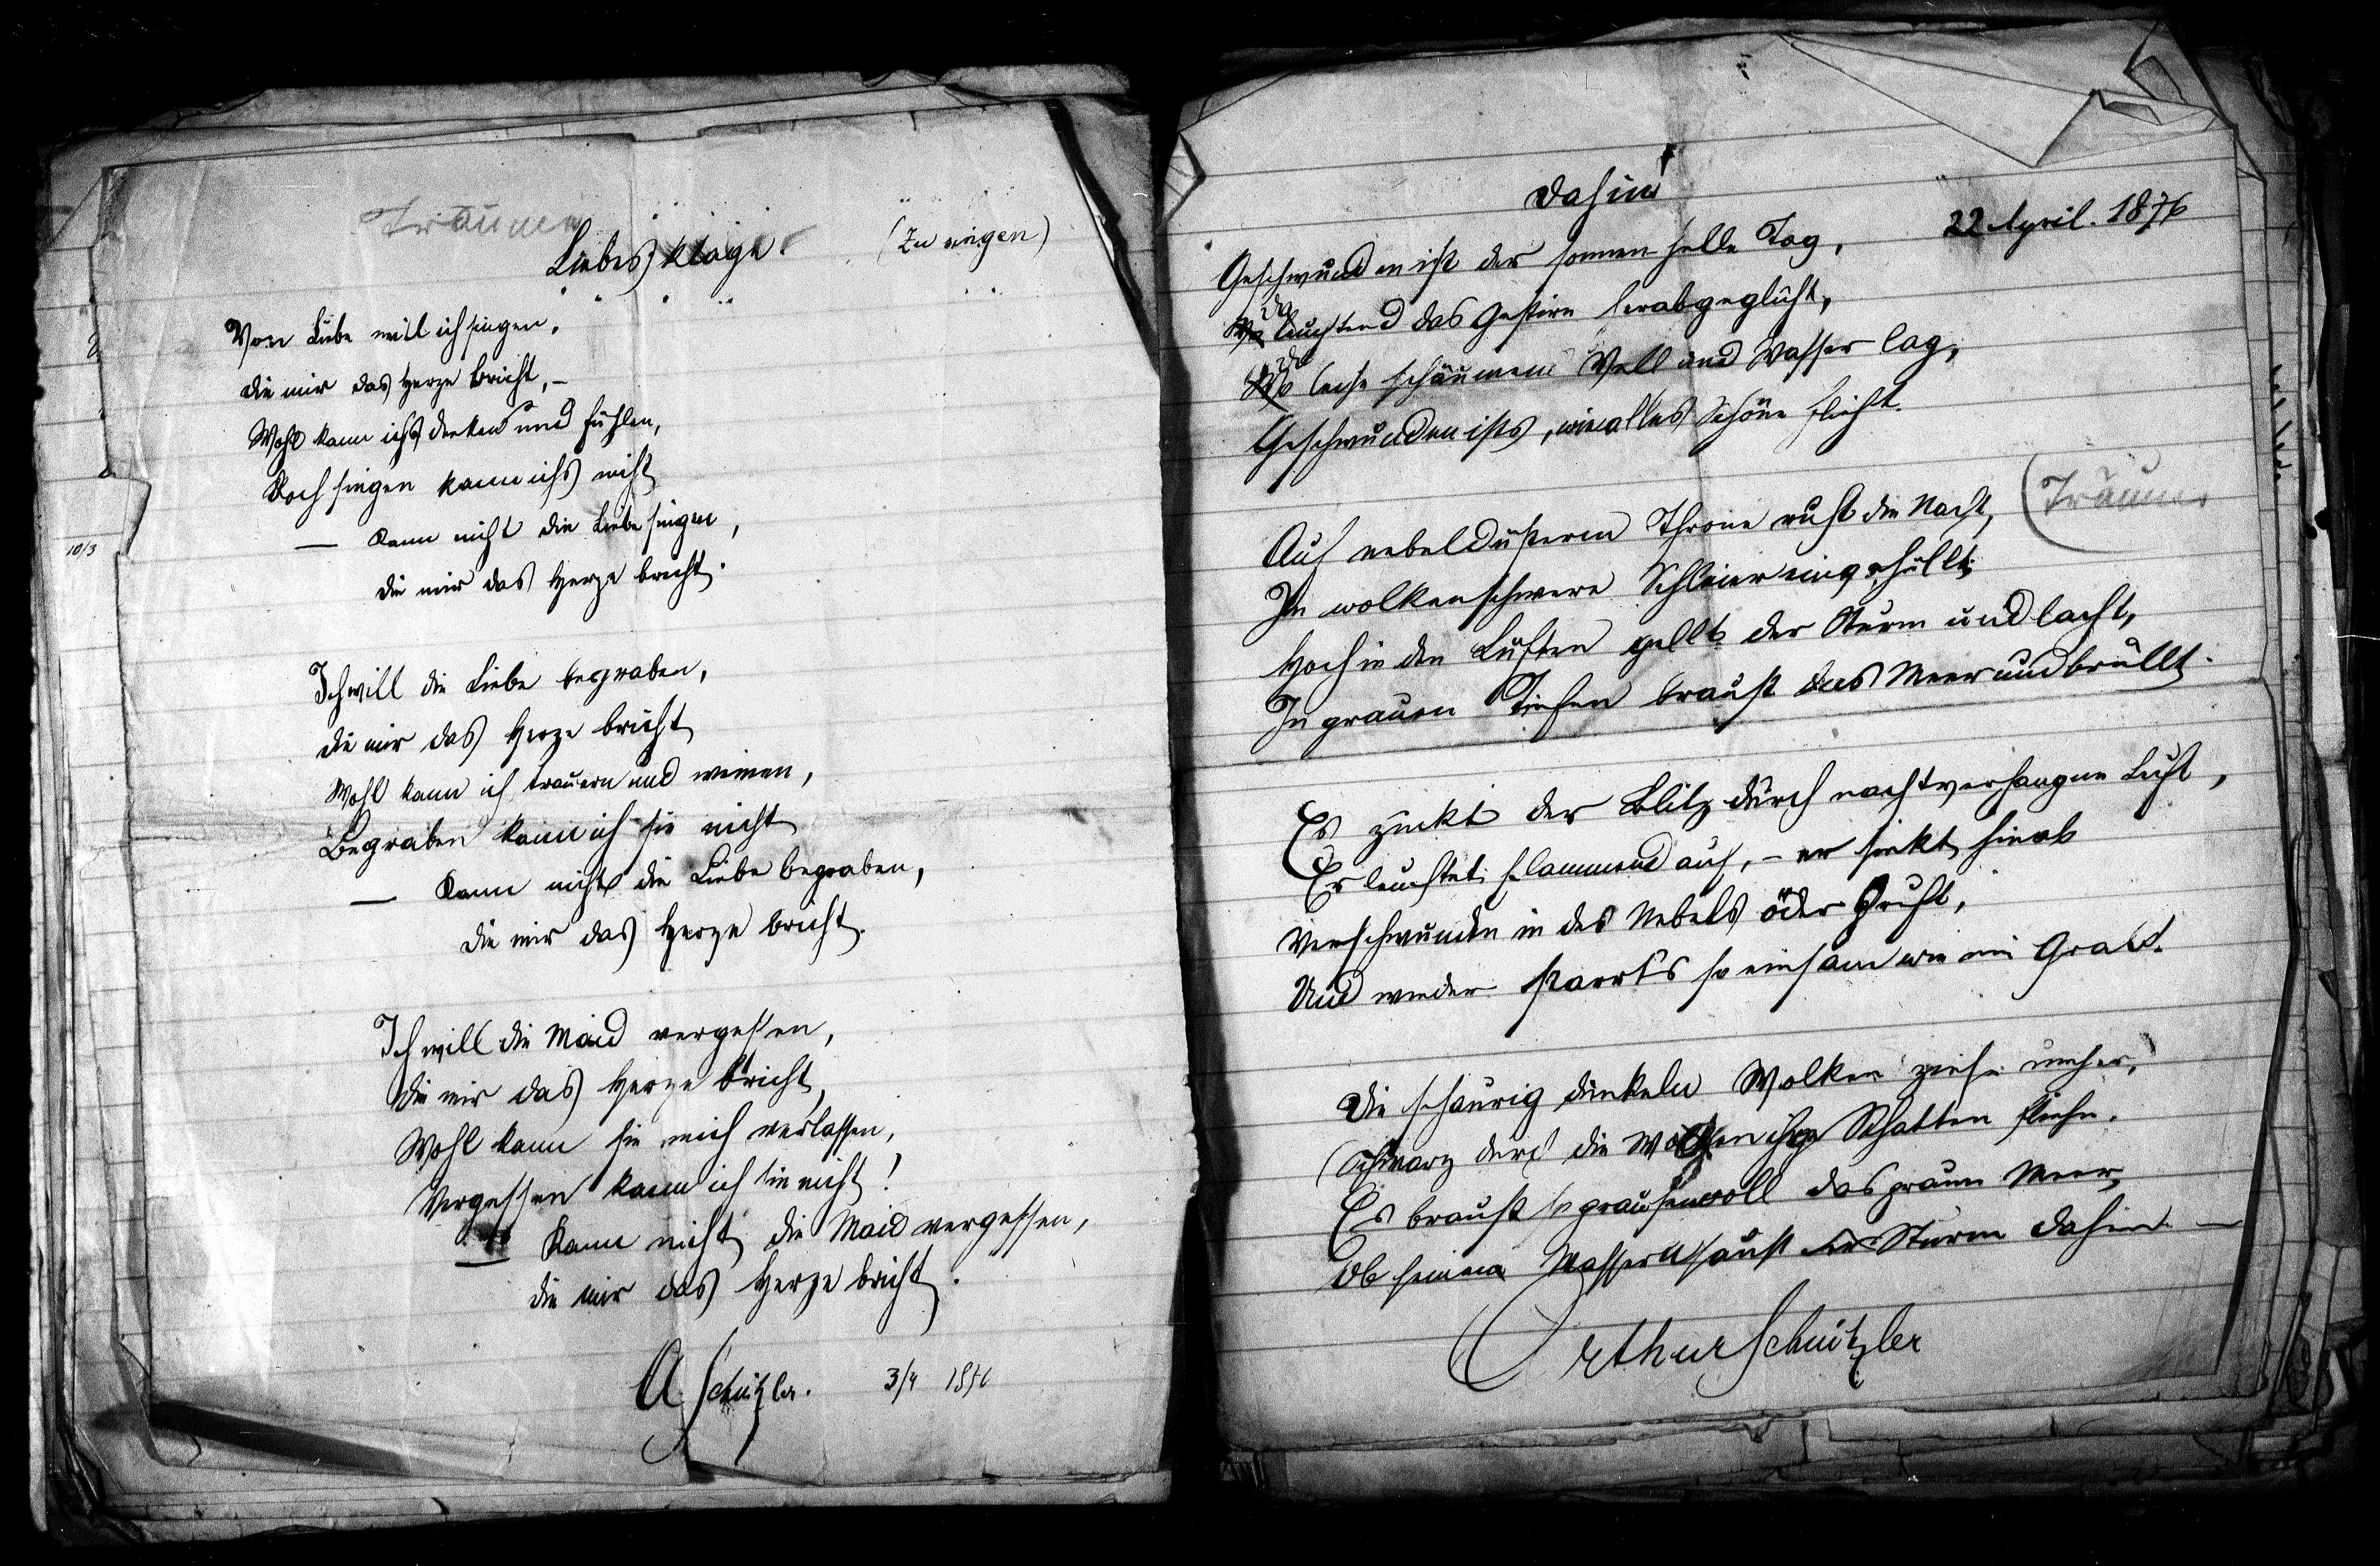 Träumer
Liebesklage. (Zu singen)
Von Liebe will ich singen,
Die mir das Herze bricht, –
Wohl kann ichs denken und fühlen,
Doch singen kann ichs nicht
— Kann nicht die Liebe singen,
Die mir das Herze bricht.
Ich will die Liebe begraben,
Die mir das Herze bricht
Wohl kann ich trauern und weinen,
Begraben kann ich sie nicht
— Kann nicht die Liebe begraben,
Die mir das Herze bricht.
Ich will die Maid vergessen,
Die mir das Herze bricht,
Wohl kann sie mich verlassen,
Vergessen kann ich sie nicht!
— Kann nicht die Maid vergessen,
Die mir das Herze bricht.
A Schnitzler. 3/4 1876
10/3
Dahin
22 April. 1876
Geschwunden ist der sonnenhelle Tag,
Da
Wo leuchtend das Gestirn herabgeglüht,
Da
Wo leise schäumend Well und Wasser lag,
Geschwunden ists, wie alles Schöne flieht.
(Träumer
Auf nebeldüsterm Throne ruht die Nacht,
In wolkenschwere Schleier eingehüllt;
Hoch in den Lüften gellt der Sturm und lacht,
In grauen Tiefen braust das Meer und brüllt.
Es zuckt der Blitz durch nachtverhangne Luft,
Er leuchtet flammend auf, – er sinkt hinab
Verschwunden in des Nebels öder Gruft,
Und wieder starrt's so einsam wie ein Grab.
Die schaurig dunkeln Wolken ziehn umher,
Schwarz durch die Wolken ihre Schatten fliehn.
Es braust so grausenvoll das graue Meer,
Ob seinen Wassern saust der Sturm dahin —
Arthur Schnitzler